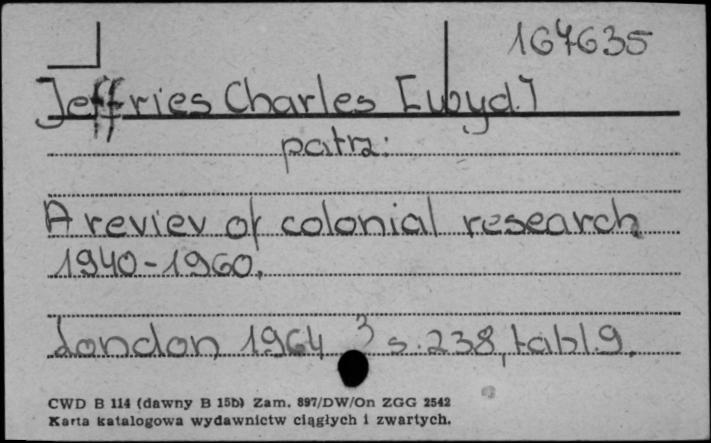 167635
Jeffries Charles [wyd.]
patrz:
A reviev of colonial research
1940-1960.
London 1964 s. 238, tabl. 9.
CWD B 114 (dawny B 15b) Zam. 897/DW/On ZGG 2542
Karta katalogowa wydawnictw ciągłych i zwartych.